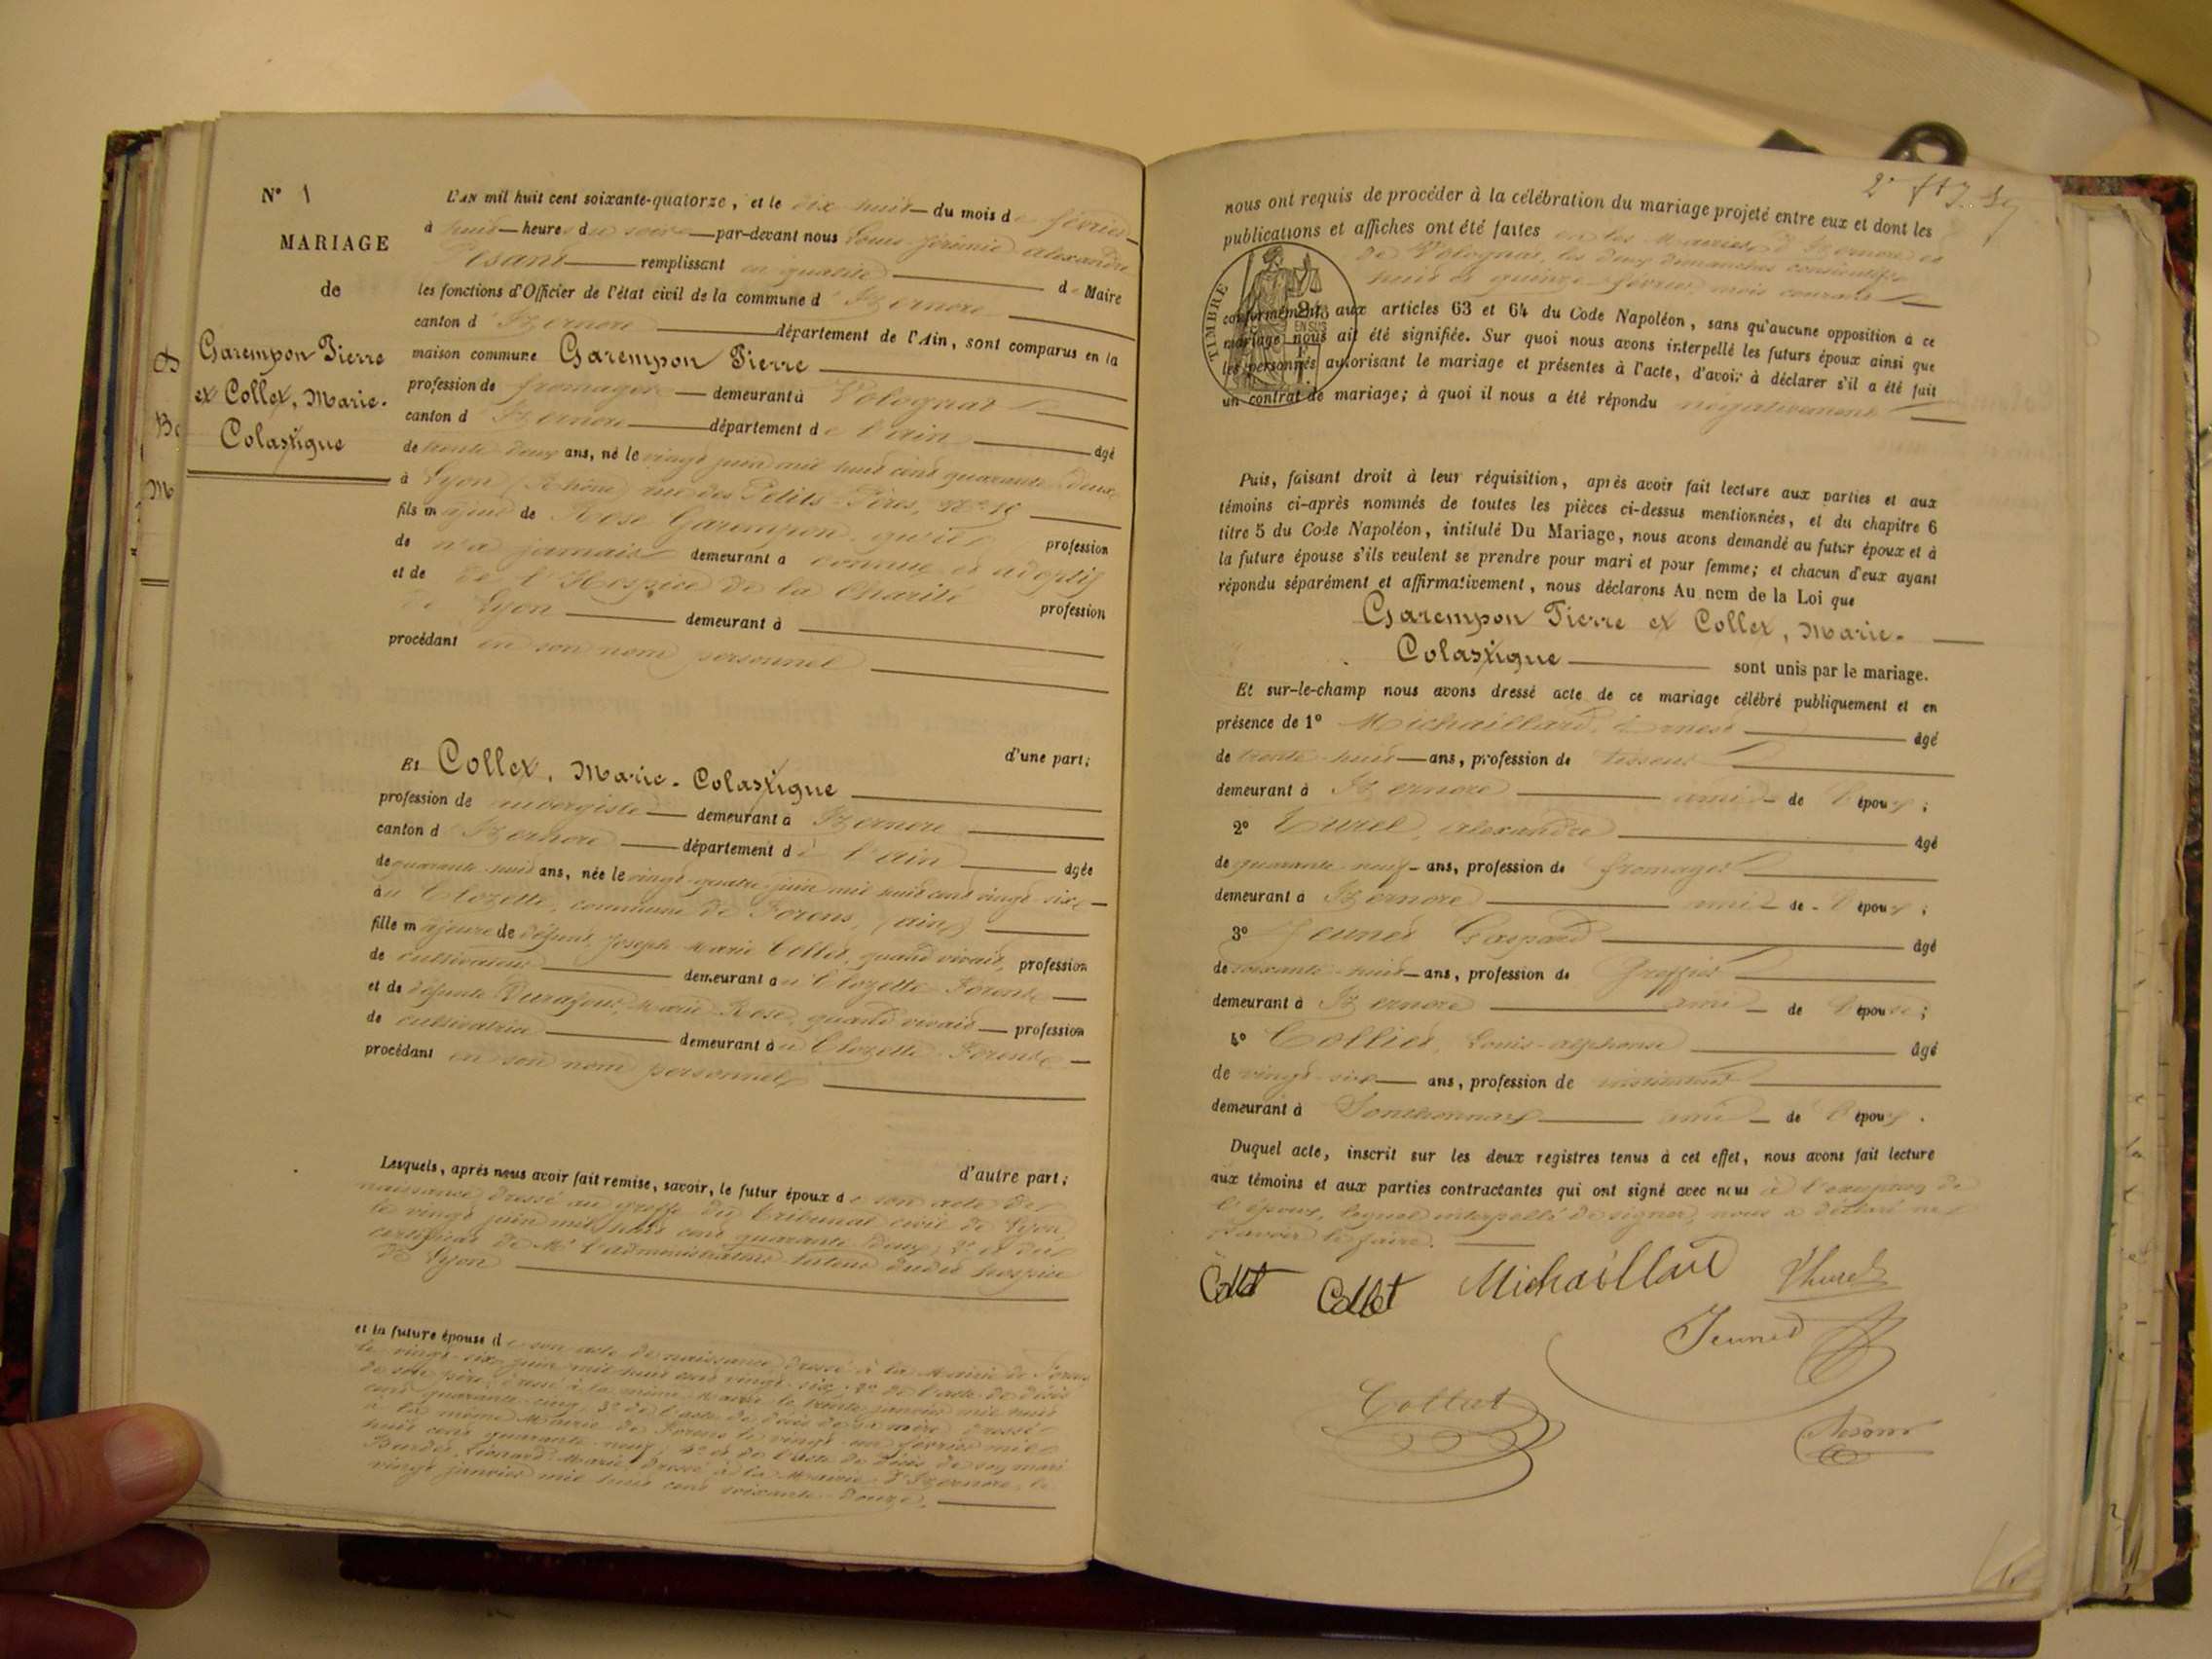 N° 1
MARIAGE
de
Garempon Pierre
et Collet, Marie-
Colastique
L'AN mil huit cent soixante-quatorze, et le dix huit du mois de février
à huit heures du soir par-devant nous Louis Jérémie Alexandre
Pesant remplissant en qualité de Maire
les fonctions d'Officier de l'état civil de la commune d'Izernore
canton d'Izernore département de l'Ain, sont comparus en la
maison commune Garempon Pierre
profession de fromager demeurant à Volognat
canton d'Izernore département de l'ain âgé
de trente deux ans, né le vingt juin mil huit cent quarante deux
à Lyon (Rhône) rue des Petits Pères, N° 15
fils majeur de Rose Garempon, qu'il profession
de n'a jamais demeurant à connue et adoptif
et de de l'Hospice de la Charité profession
de Lyon demeurant à
procédant en son nom personnel
d'une part;
Et Collet, Marie-Colastique
profession de aubergiste demeurant à Izernore
canton d'Izernore département de l'ain âgée
de quarante huit ans, née le vingt quatre juin mil huit cent vingt six
au Clozette, commune de Forens, (ain)
fille majeure de défunt Joseph Marie Collet, quand vivait, profession
de cultivateur demeurant au Clozette Forens
et de défunte Durafour, Marie Rose, quand vivait profession
de cultivatrice demeurant au Clozette Forens
procédant en son nom personnel
d'autre part;
Lesquels, après nous avoir fait remise, savoir, le futur époux de son acte de
naissance dressé au greffe du tribunal civil de Lyon,
le vingt juin mil huit cent quarante deux, 2° et du
certificat de Mr l'administrateur tuteur dudit hospice
de Lyon
et la future épouse de son acte de naissance dressé à la Mairie de Forens
le vingt-six juin mil huit cent vingt six; 2° de l'acte de décès
de son père, dressé à la même Mairie le trente janvier mil huit
cent quarante cinq, 3° de l'acte de décès de sa mère dressé
à la même Mairie de Forens le vingt-un février mil
huit cent quarante neuf, 4° et de l'acte de décès de son mari
Burdet, Léonard Marie dressé à la Mairie d'Izernore, le
vingt janvier mil huit cent soixante-douze,
nous ont requis de procéder à la célébration du mariage projeté entre eux et dont les
publications et affiches ont été faites en les Mairies d'Izernore et
de Volognat, les deux dimanches consécutifs
huit et quinze février, mois courant
TIMBRE
conformément aux articles 63 et 64 du Code Napoléon, sans qu'aucune opposition à ce
mariage nous ait été signifiée. Sur quoi nous avons interpellé les futurs époux ainsi que
les personnes autorisant le mariage et présentes à l'acte, d'avoir à déclarer s'il a été fait
un contrat de mariage; à quoi il nous a été répondu négativement
Puis, faisant droit à leur réquisition, après avoir fait lecture aux parties et aux
témoins ci-après nommés de toutes les pièces ci-dessus mentionnées, et du chapitre 6
titre 5 du Code Napoléon, intitulé Du Mariage, nous avons demandé au futur époux et à
la future épouse s'ils veulent se prendre pour mari et pour femme; et chacun d'eux ayant
répondu séparément et affirmativement, nous déclarons Au nom de la Loi que
Garempon Pierre et Collet, Marie-
Colastique sont unis par le mariage.
Et sur-le-champ nous avons dressé acte de ce mariage célébré publiquement et en
présence de 1° Michaillard, Ernest âgé
de trente-huit ans, profession de tisseur
demeurant à Izernore ami de l'époux;
2° Turel, alexandre âgé
de quarante neuf ans, profession de fromager
demeurant à Izernore ami de l'époux;
3° Jeunet Gaspard âgé
de soixante-huit ans, profession de Greffier
demeurant à Izernore ami de l'épouse;
4° Collet, Louis-alphonse âgé
de vingt-six ans, profession de instituteur
demeurant à Sonthonnax ami de l'époux.
Duquel acte, inscrit sur les deux registres tenus à cet effet, nous avons fait lecture
aux témoins et aux parties contractantes qui ont signé avec nous à l'exception de
l'époux, lequel interpellé de signer, nous a déclaré ne
savoir le faire.
Collet Collet Michaillard Thurel
Jeunet
Collet
Pesant